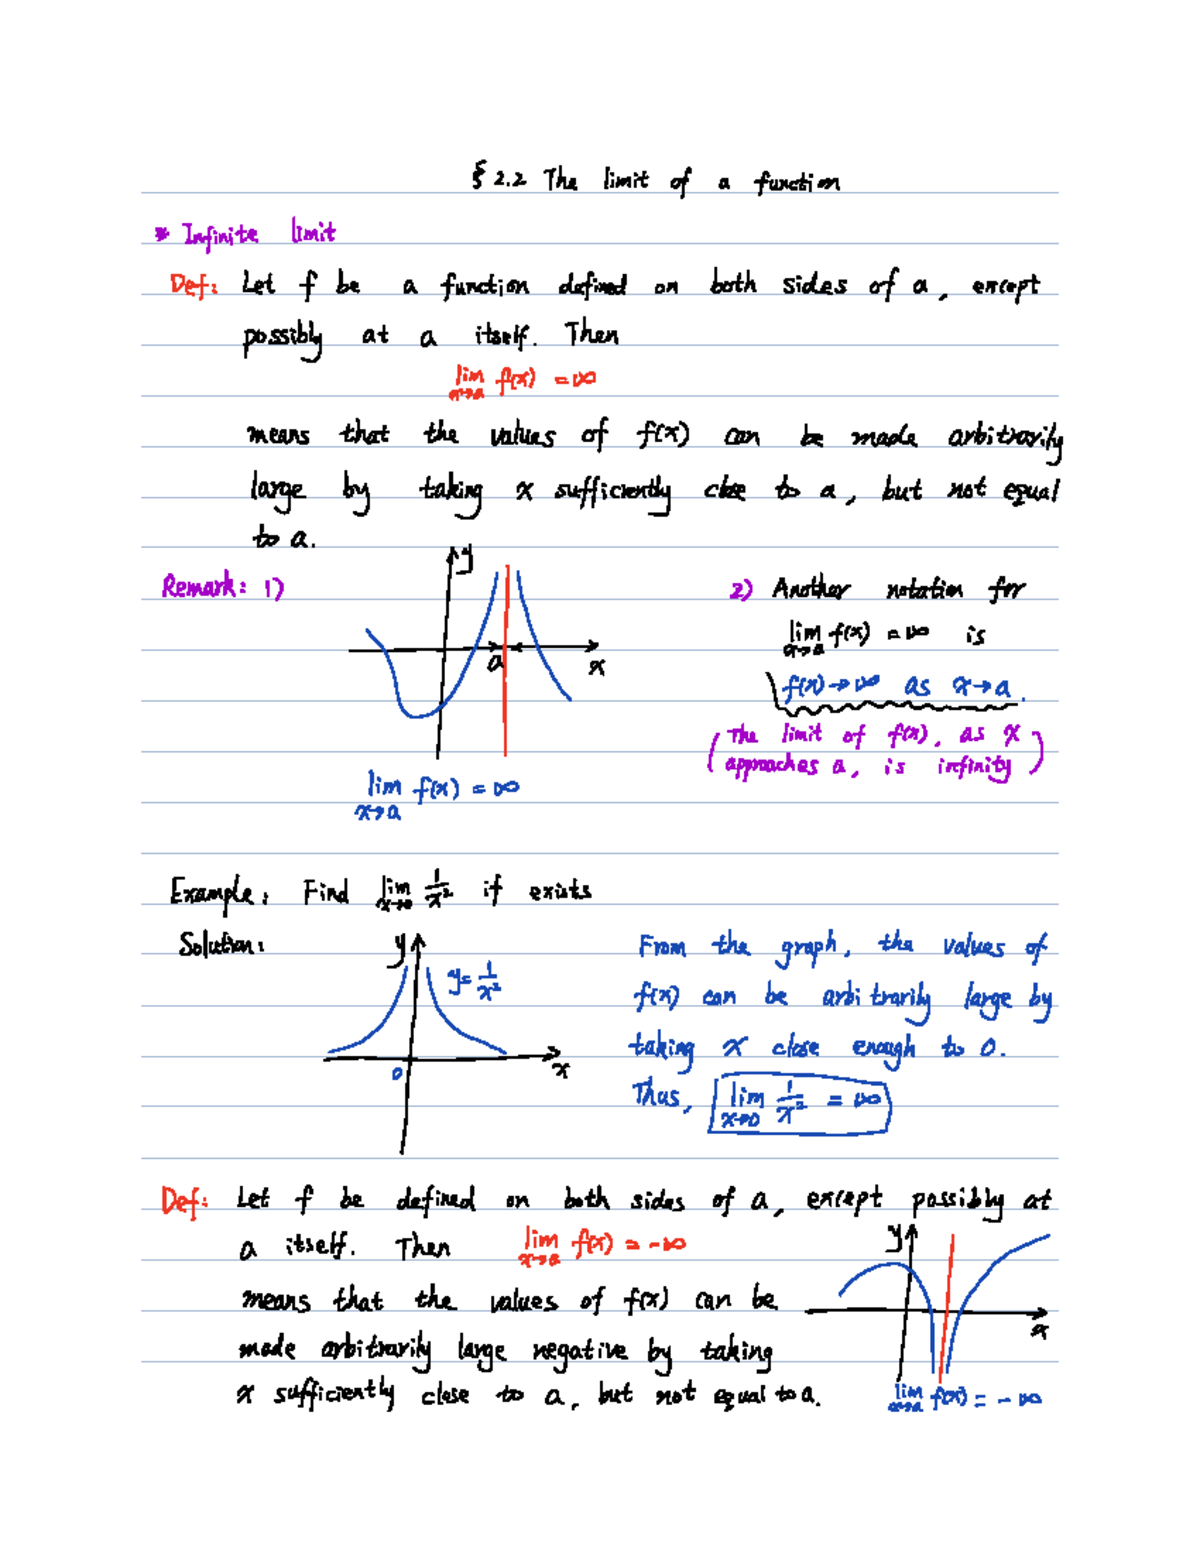 § 2.2 The limit of a function
* Infinite limit
Def: Let f be a function defined on both sides of a, except
possibly at a itself. Then
lim f(x) = ∞
x→a
means that the values of f(x) can be made arbitrarily
large by taking x sufficiently close to a, but not equal
to a.
Remark: 1)
y
a
x
lim f(x) = ∞
x→a
2) Another notation for
lim f(x) = ∞ is
x→a
f(x)→∞ as x→a.
(The limit of f(x), as x
approaches a, is infinity)
Example: Find lim 1/x² if exists
x→0
Solution:
y
y = 1/x²
0
x
From the graph, the values of
f(x) can be arbitrarily large by
taking x close enough to 0.
Thus, lim 1/x² = ∞
x→0
Def: Let f be defined on both sides of a, except possibly at
a itself. Then lim f(x) = -∞
x→a
means that the values of f(x) can be
made arbitrarily large negative by taking
x sufficiently close to a, but not equal to a.
y
x
lim f(x) = -∞
x→a